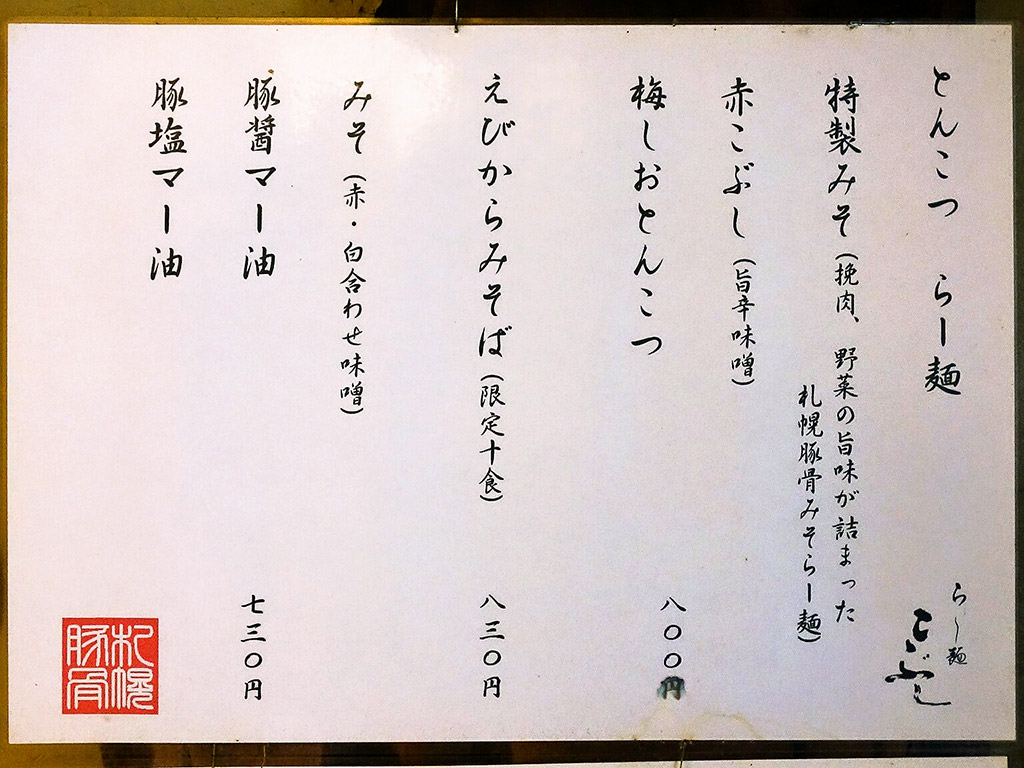 とんこつ らー麺
らー麺
こぶし
特製みそ(挽肉、野菜の旨味が詰まった
札幌豚骨みそらー麺)
赤こぶし(旨辛味噌)
梅しおとんこつ
八〇〇円
えびからみそば(限定十食)
八三〇円
みそ(赤・白合わせ味噌)
豚醤マー油
七三〇円
豚塩マー油
札幌
豚骨